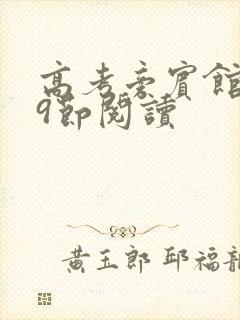 高考前賓館
9節閱讀
黃玉郎 邱福龍